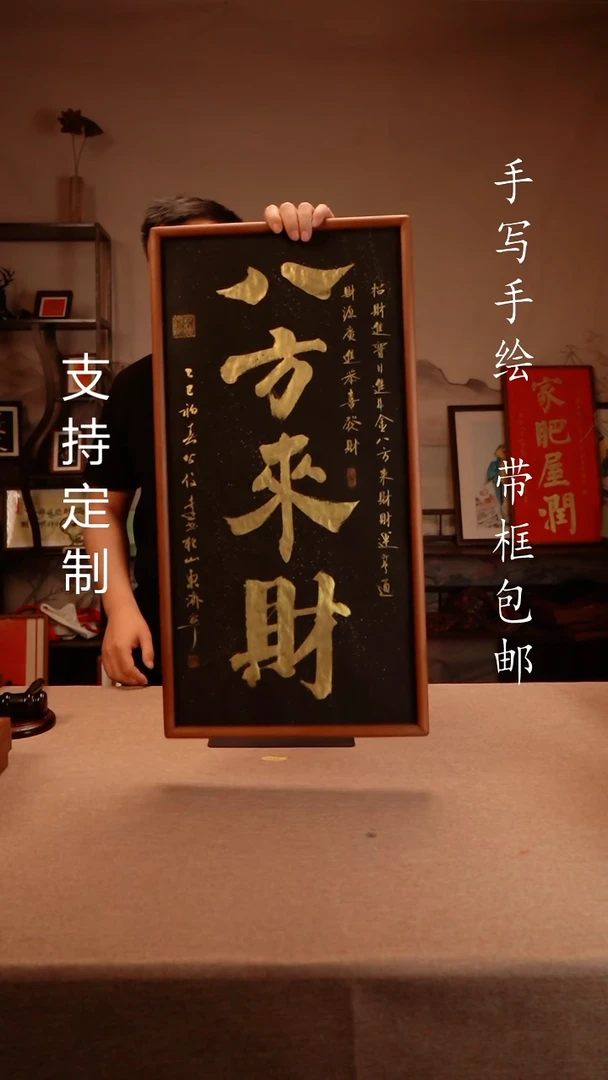 八方來財
招財進寶日進斗金八方來財財運亨通
財源廣進恭喜發財
乙巳初春
山東濟寧
支持定制
手写手绘 带框包邮
家肥屋潤